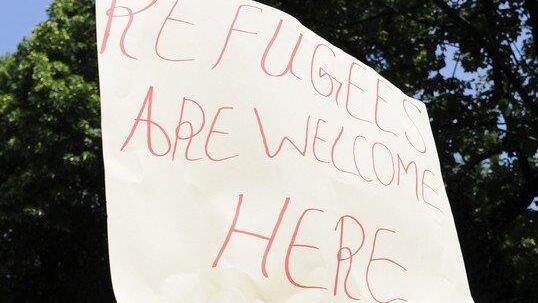 REFUGEES
ARE WELCOME
HERE